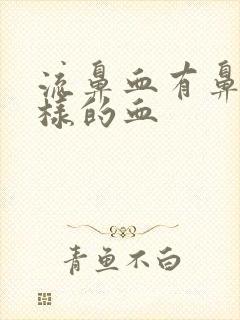 流鼻血有鼻
样的血
青鱼不白